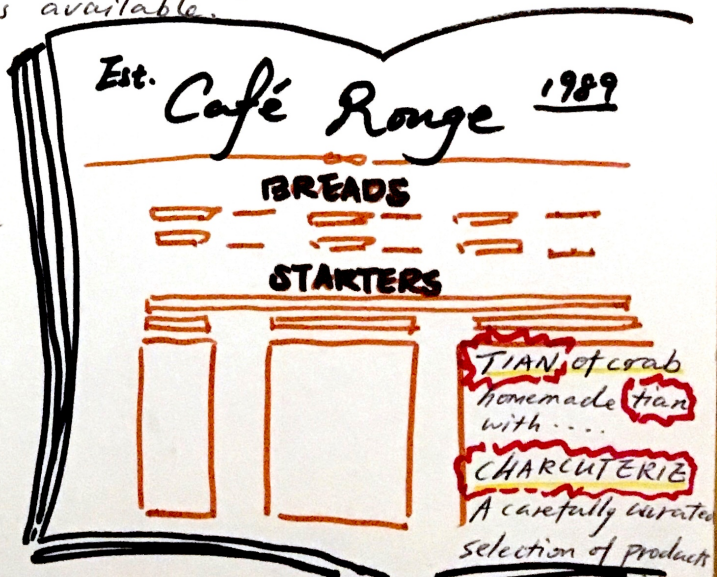 s available.
Est. Café Rouge 1989
BREADS
STARTERS
TIAN of crab
homemade tian
with ....
CHARCUTERIE
A carefully curated
selection of products